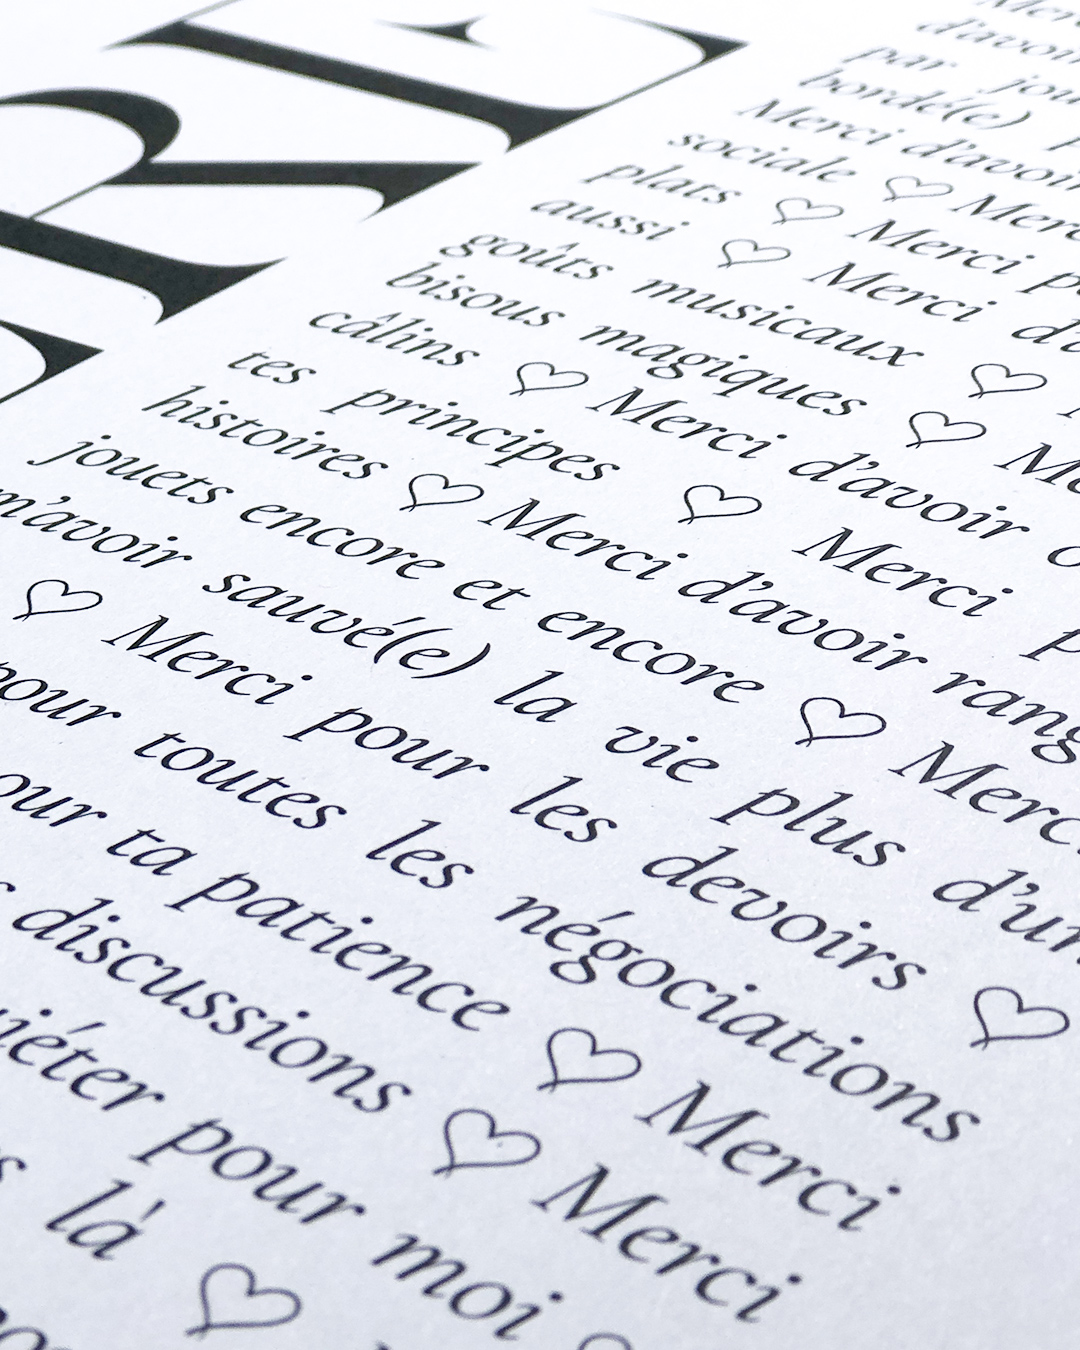 RE
Merci
d'avoir
par jou
bordé(e)
Merci d'avoi
sociale ♡ Merc
plats ♡ Merci p
aussi ♡ Merci d'a
goûts musicaux ♡
bisous magiques ♡ Me
câlins ♡ Merci d'avoir
tes principes ♡ Merci p
histoires ♡ Merci d'avoir rang
jouets encore et encore ♡ Merc
m'avoir sauvé(e) la vie plus d'un
♡ Merci pour les devoirs ♡
pour toutes les négociations
our ta patience ♡ Merci
s discussions ♡ Merci
iéter pour moi ♡
s là ♡